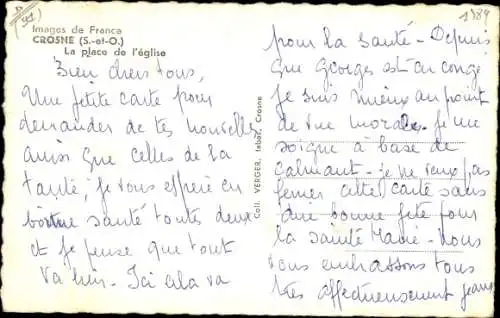 D (91)
1989
Images de France
CROSNE (S.-et-O.)
La place de l'église
Bien chers tous,
Une petite carte pour
demander de tes nouvelles
ainsi que celles de la
tante, je vous espère en
bonne santé toutes deux
et je pense que tout
va bien. Ici cela va
Coll. VERGER, tabac, Crosne
pour la santé - Depuis
que Georges est en congé
je suis mieux au point
de vue morale. je me
soigne à base de
calmant - je ne veux pas
fermer cette carte sans
une bonne fête pour
la Sainte Marie - Nous
vous embrassons tous
très affectueusement Jeanne